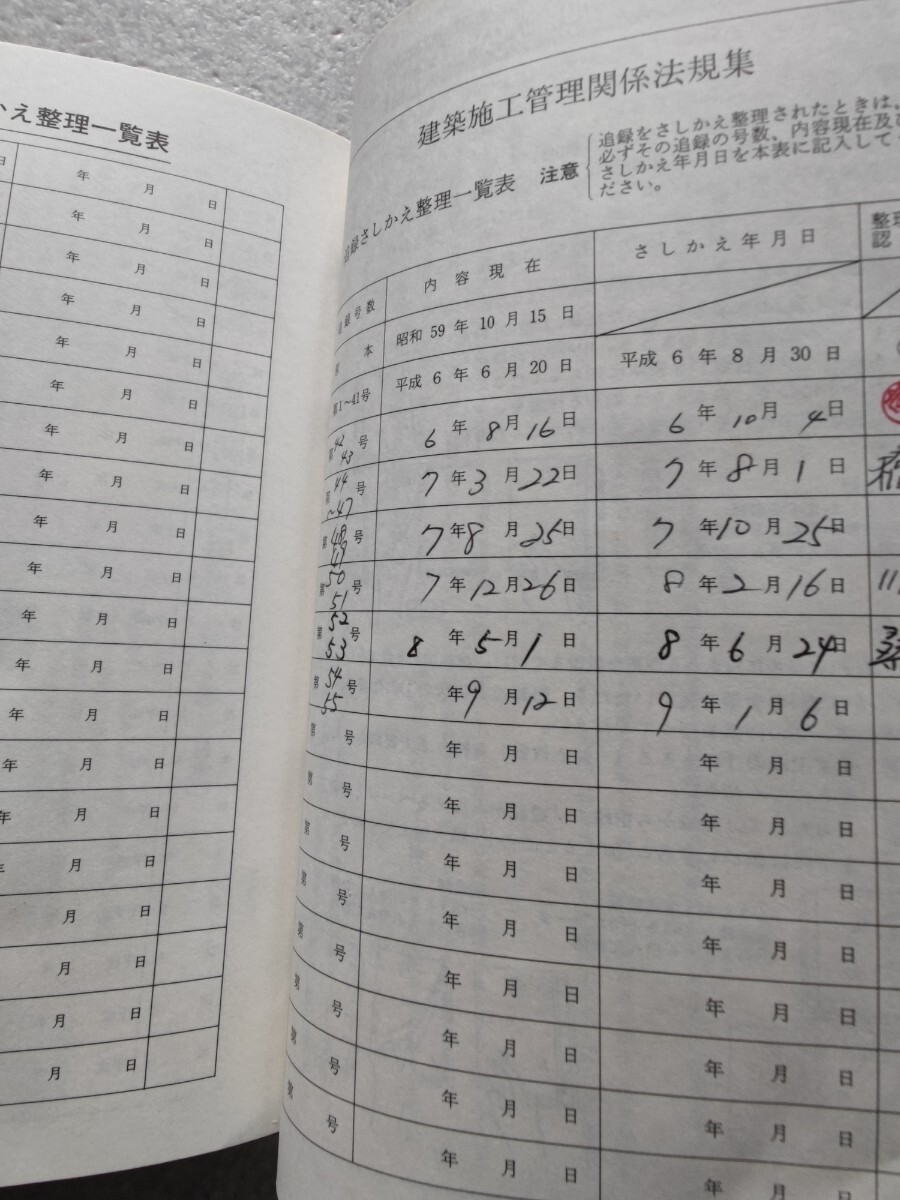 かえ整理一覧表
日 年 月 日
年 月 日
年 月 日
年 月 日
年 月 日
年 月 日
年 月 日
年 月 日
年 月 日
年 月 日
年 月 日
年 月 日
年 月 日
年 月 日
年 月 日
年 月 日
月 日
月 日
月 日
月 日
建築施工管理関係法規集
追録さしかえ整理一覧表 注意
追録をさしかえ整理されたときは、
必ずその追録の号数、内容現在及び
さしかえ年月日を本表に記入して
ださい。
追録号数 内容現在 さしかえ年月日 整理
認
本 昭和 59 年 10 月 15 日
第1~41号 平成 6 年 6 月 20 日 平成 6 年 8 月 30 日
第42 43号 6年8月16日 6年10月4日
第44~47号 7年3月22日 7年8月1日
第48 49号 7年8月25日 7年10月25日
第50 51号 7年12月26日 8年2月16日
第52 53号 8年5月1日 8年6月24日
第54 55号 年9月12日 9年1月6日
第 号 年 月 日 年 月 日
第 号 年 月 日 年 月 日
第 号 年 月 日 年 月 日
第 号 年 月 日 年 月 日
第 号 年 月 日 年 月 日
第 号 年 月 日 年 月 日
第 号 年 月 日 年 月 日
第 号 年 月 日 年 月 日